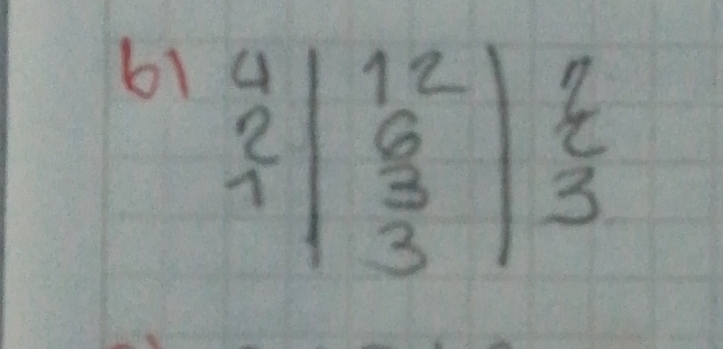 b) 4 | 12 | 2
2 | 6 | 2
1 | 3 | 3
3